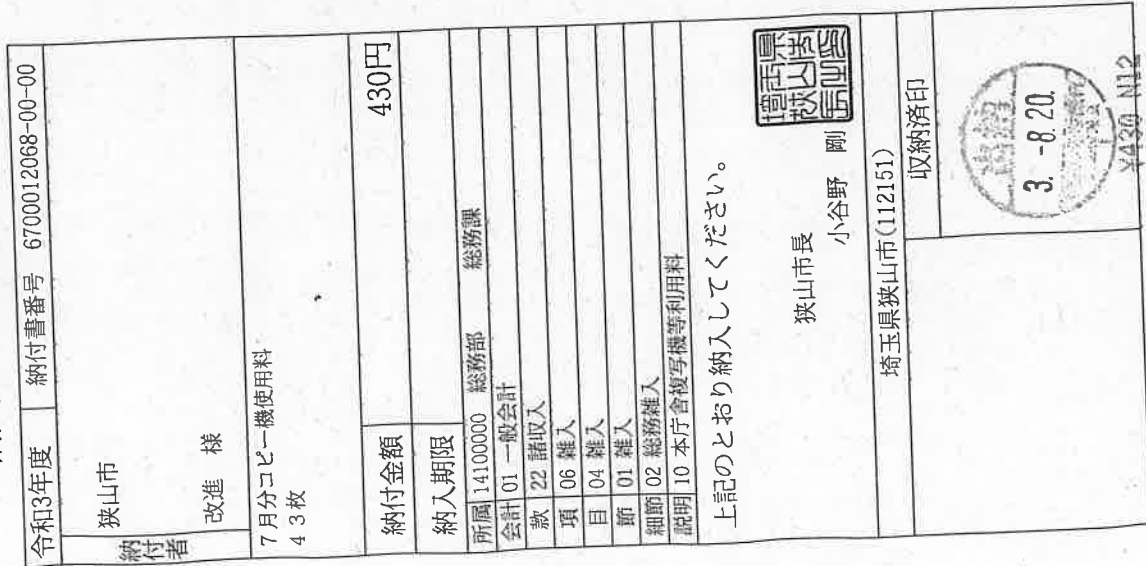 令和3年度 納付書番号 6700012068-00-00
納付者
狭山市
改進 様
7月分コピー機使用料
43枚
納付金額 430円
納入期限
所属 14100000 総務部 総務課
会計 01 一般会計
款 22 諸収入
項 06 雑入
目 04 雑入
節 01 雑入
細節 02 総務雑入
説明 10 本庁舎複写機等利用料
上記のとおり納入してください。
狭山市長
小谷野 剛
埼玉県狭山市長之印
埼玉県狭山市(112151)
収納済印
3.-8.20.
¥430 N12